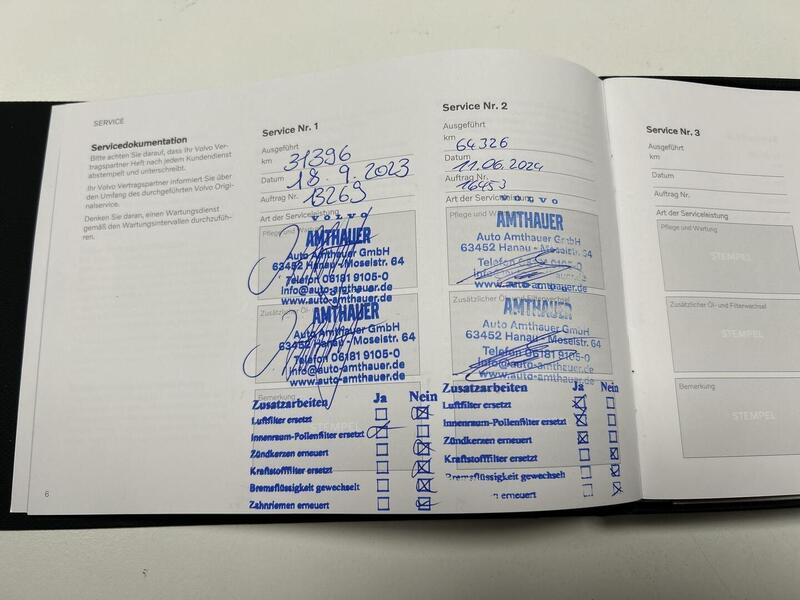 SERVICE
Servicedokumentation
Bitte achten Sie darauf, dass Ihr Volvo Ver-
tragspartner Heft nach jedem Kundendienst
abstempelt und unterschreibt.
Ihr Volvo Vertragspartner informiert Sie über
den Umfang des durchgeführten Volvo Origi-
nalservice.
Denken Sie daran, einen Wartungsdienst
gemäß den Wartungsintervallen durchzufüh-
ren.
6
Service Nr. 1
Ausgeführt
km 31396
Datum 18.9.2023
Auftrag Nr. 13269
Art der Serviceleistung
VOLVO
Pflege und Wartung
AMTHAUER
Auto Amthauer GmbH
63452 Hanau - Moselstr. 64
Telefon 06181 9105-0
info@auto-amthauer.de
www.auto-amthauer.de
Zusätzlicher Öl-
AMTHAUER
Auto Amthauer GmbH
63452 Hanau - Moselstr. 64
Telefon 06181 9105-0
info@auto-amthauer.de
www.auto-amthauer.de
Bemerkung
Zusatzarbeiten Ja Nein
Luftfilter ersetzt
Innenraum-Pollenfilter ersetzt
Zündkerzen erneuert
Kraftstofffilter ersetzt
Bremsflüssigkeit gewechselt
Zahnriemen erneuert
Service Nr. 2
Ausgeführt
km 64326
Datum 11.06.2024
Auftrag Nr. 16453
Art der Serviceleistung
VOLVO
Pflege und
AMTHAUER
Auto Amthauer GmbH
63452 Hanau - Moselstr. 64
Telefon 06181 9105-0
info@auto-amthauer.de
www.auto-amthauer.de
Zusätzlicher Öl- und Filterwechsel
AMTHAUER
Auto Amthauer GmbH
63452 Hanau - Moselstr. 64
Telefon 06181 9105-0
info@auto-amthauer.de
www.auto-amthauer.de
Zusatzarbeiten Ja Nein
Luftfilter ersetzt
Innenraum-Pollenfilter ersetzt
Zündkerzen erneuert
Kraftstofffilter ersetzt
Bremsflüssigkeit gewechselt
erneuert
Service Nr. 3
Ausgeführt
km
Datum
Auftrag Nr.
Art der Serviceleistung
Pflege und Wartung
STEMPEL
Zusätzlicher Öl- und Filterwechsel
STEMPEL
Bemerkung
STEMPEL